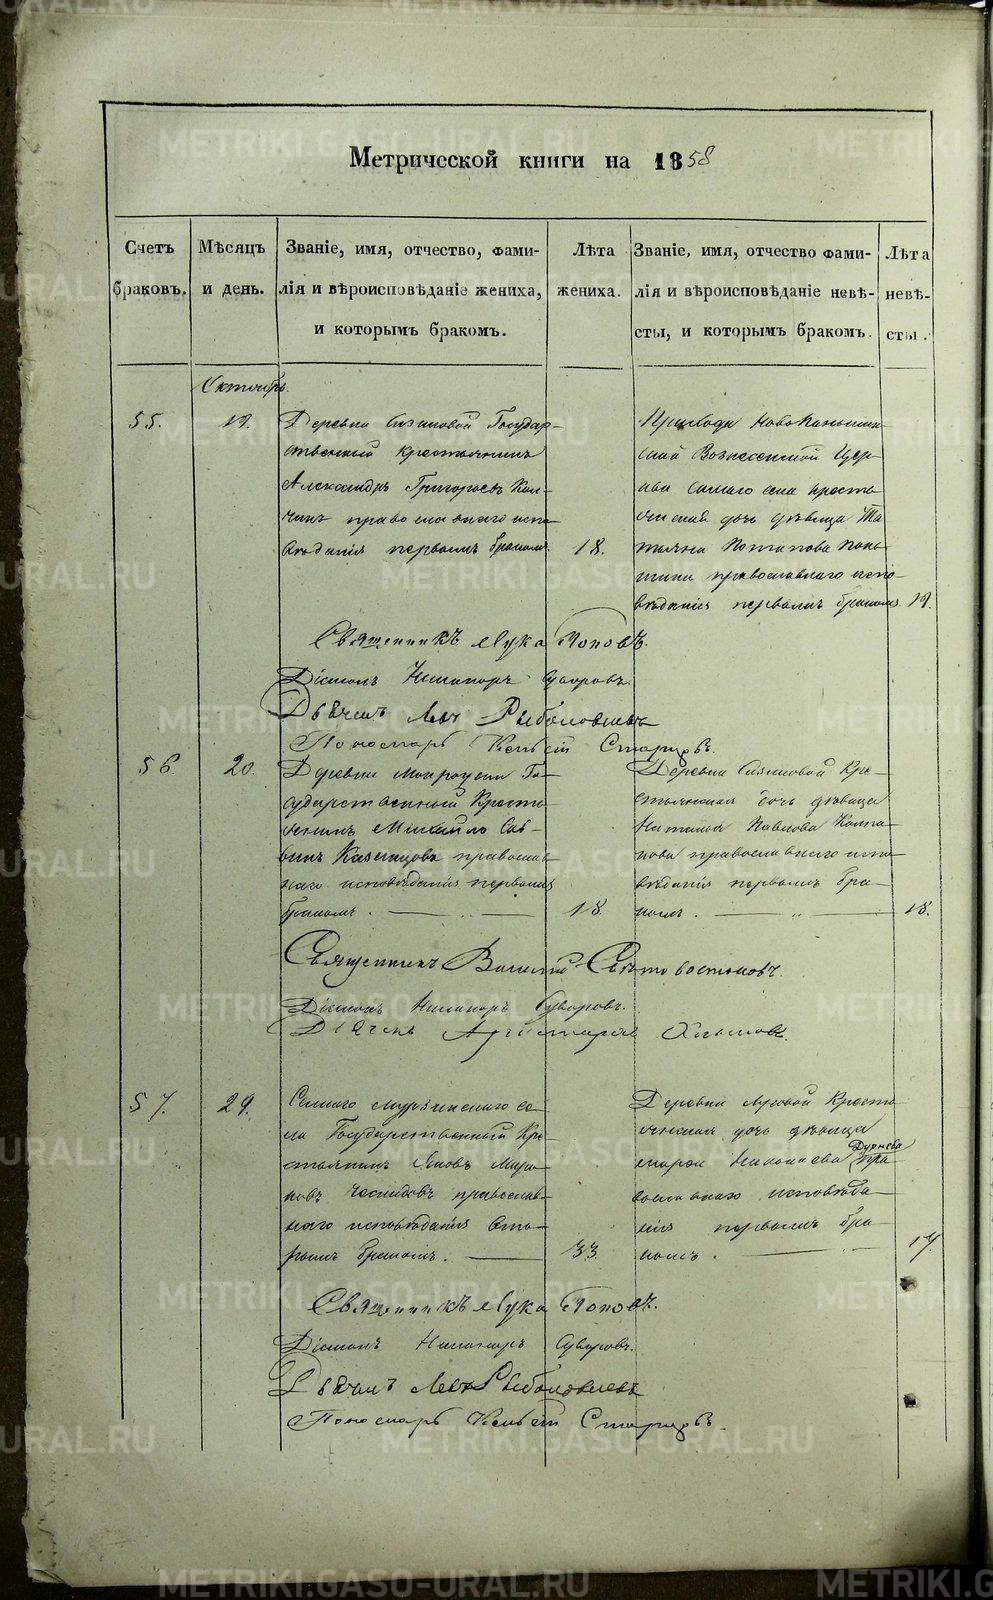 Метрической книги на 1858
Счетъ браковъ.
Мѣсяцъ и день.
Званіе, имя, отчество, фами-
лія и вѣроисповѣданіе жениха,
и которымъ бракомъ.
Лѣта жениха.
Званіе, имя, отчество фами-
лія и вѣроисповѣданіе невѣ-
сты, и которымъ бракомъ.
Лѣта невѣ-
сты.
Октябрь.
55.
Деревни Сизиковой Государ-
ственный крестьянинъ
Александръ Григорьевъ Кол-
православнаго испо-
вѣданія первымъ бракомъ.
18.
Прихода
Вознесенской Цер-
кви самаго села кресть
янская дочь дѣвица Та
тьяна Потапова
православнаго испо-
вѣданія первымъ бракомъ
19.
Священникъ Лука Поповъ.
Діаконъ Никаноръ Суворовъ.
Дьячекъ Левъ
Пономарь
56.
20.
Деревни Го-
сударственный Кресть
янинъ Михайло Сав-
винъ Казанцовъ православ
наго исповѣданія первымъ
бракомъ.
18.
Деревни Сизиковой Кре-
стьянская дочь дѣвица
Наталья Павлова Колпа-
кова православнаго испо-
вѣданія первымъ бра-
комъ.
18.
Священникъ
Діаконъ Никаноръ Суворовъ.
Дьячекъ Аристархъ
57.
29.
Самаго Мурзинскаго се-
ла Государственный Кре-
стьянинъ Яковъ Миро-
новъ православ-
наго исповѣданія вто-
рымъ бракомъ.
33.
Деревни Луговой Кресть
янская дочь дѣвица
Марѳа Николаева Дурнева пра
вославнаго исповѣда-
нія первымъ бра-
комъ.
17.
Священникъ Лука Поповъ.
Діаконъ Никаноръ Суворовъ.
Дьячекъ Левъ
Пономарь
METRIKI.GASO-URAL.RU